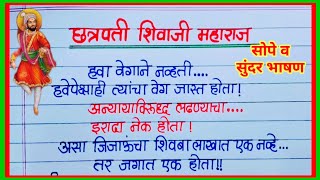 छत्रपती शिवाजी महाराज
सोपे व
सुंदर भाषण
हवा वेगाने नव्हती....
हवेपेक्षाही त्यांचा वेग जास्त होता!
अन्यायाविरुद्ध लढण्याचा....
इरादा नेक होता!
असा जिजाऊंचा शिवबा लाखात एक नव्हे...
तर जगात एक होता!!